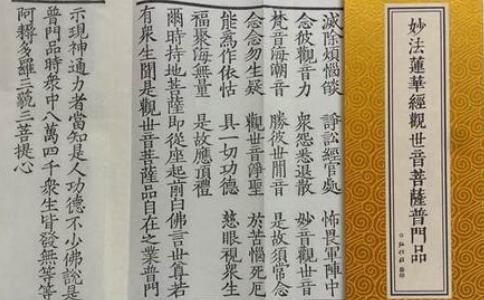 妙法蓮華經觀世音菩薩普門品
滅除煩惱燄 諍訟經官處 怖畏軍陣中
念彼觀音力 衆怨悉退散 妙音觀世音
梵音海潮音 勝彼世間音 是故須常念
念念勿生疑 觀世音淨聖 於苦惱死厄
能為作依怙 具一切功德 慈眼視衆生
福聚海無量 是故應頂禮
爾時持地菩薩即從座起前白佛言世尊若
有衆生聞是觀世音菩薩品自在之業普門
示現神通力者當知是人功德不少佛說是
普門品時衆中八萬四千衆生皆發無等等
阿耨多羅三藐三菩提心